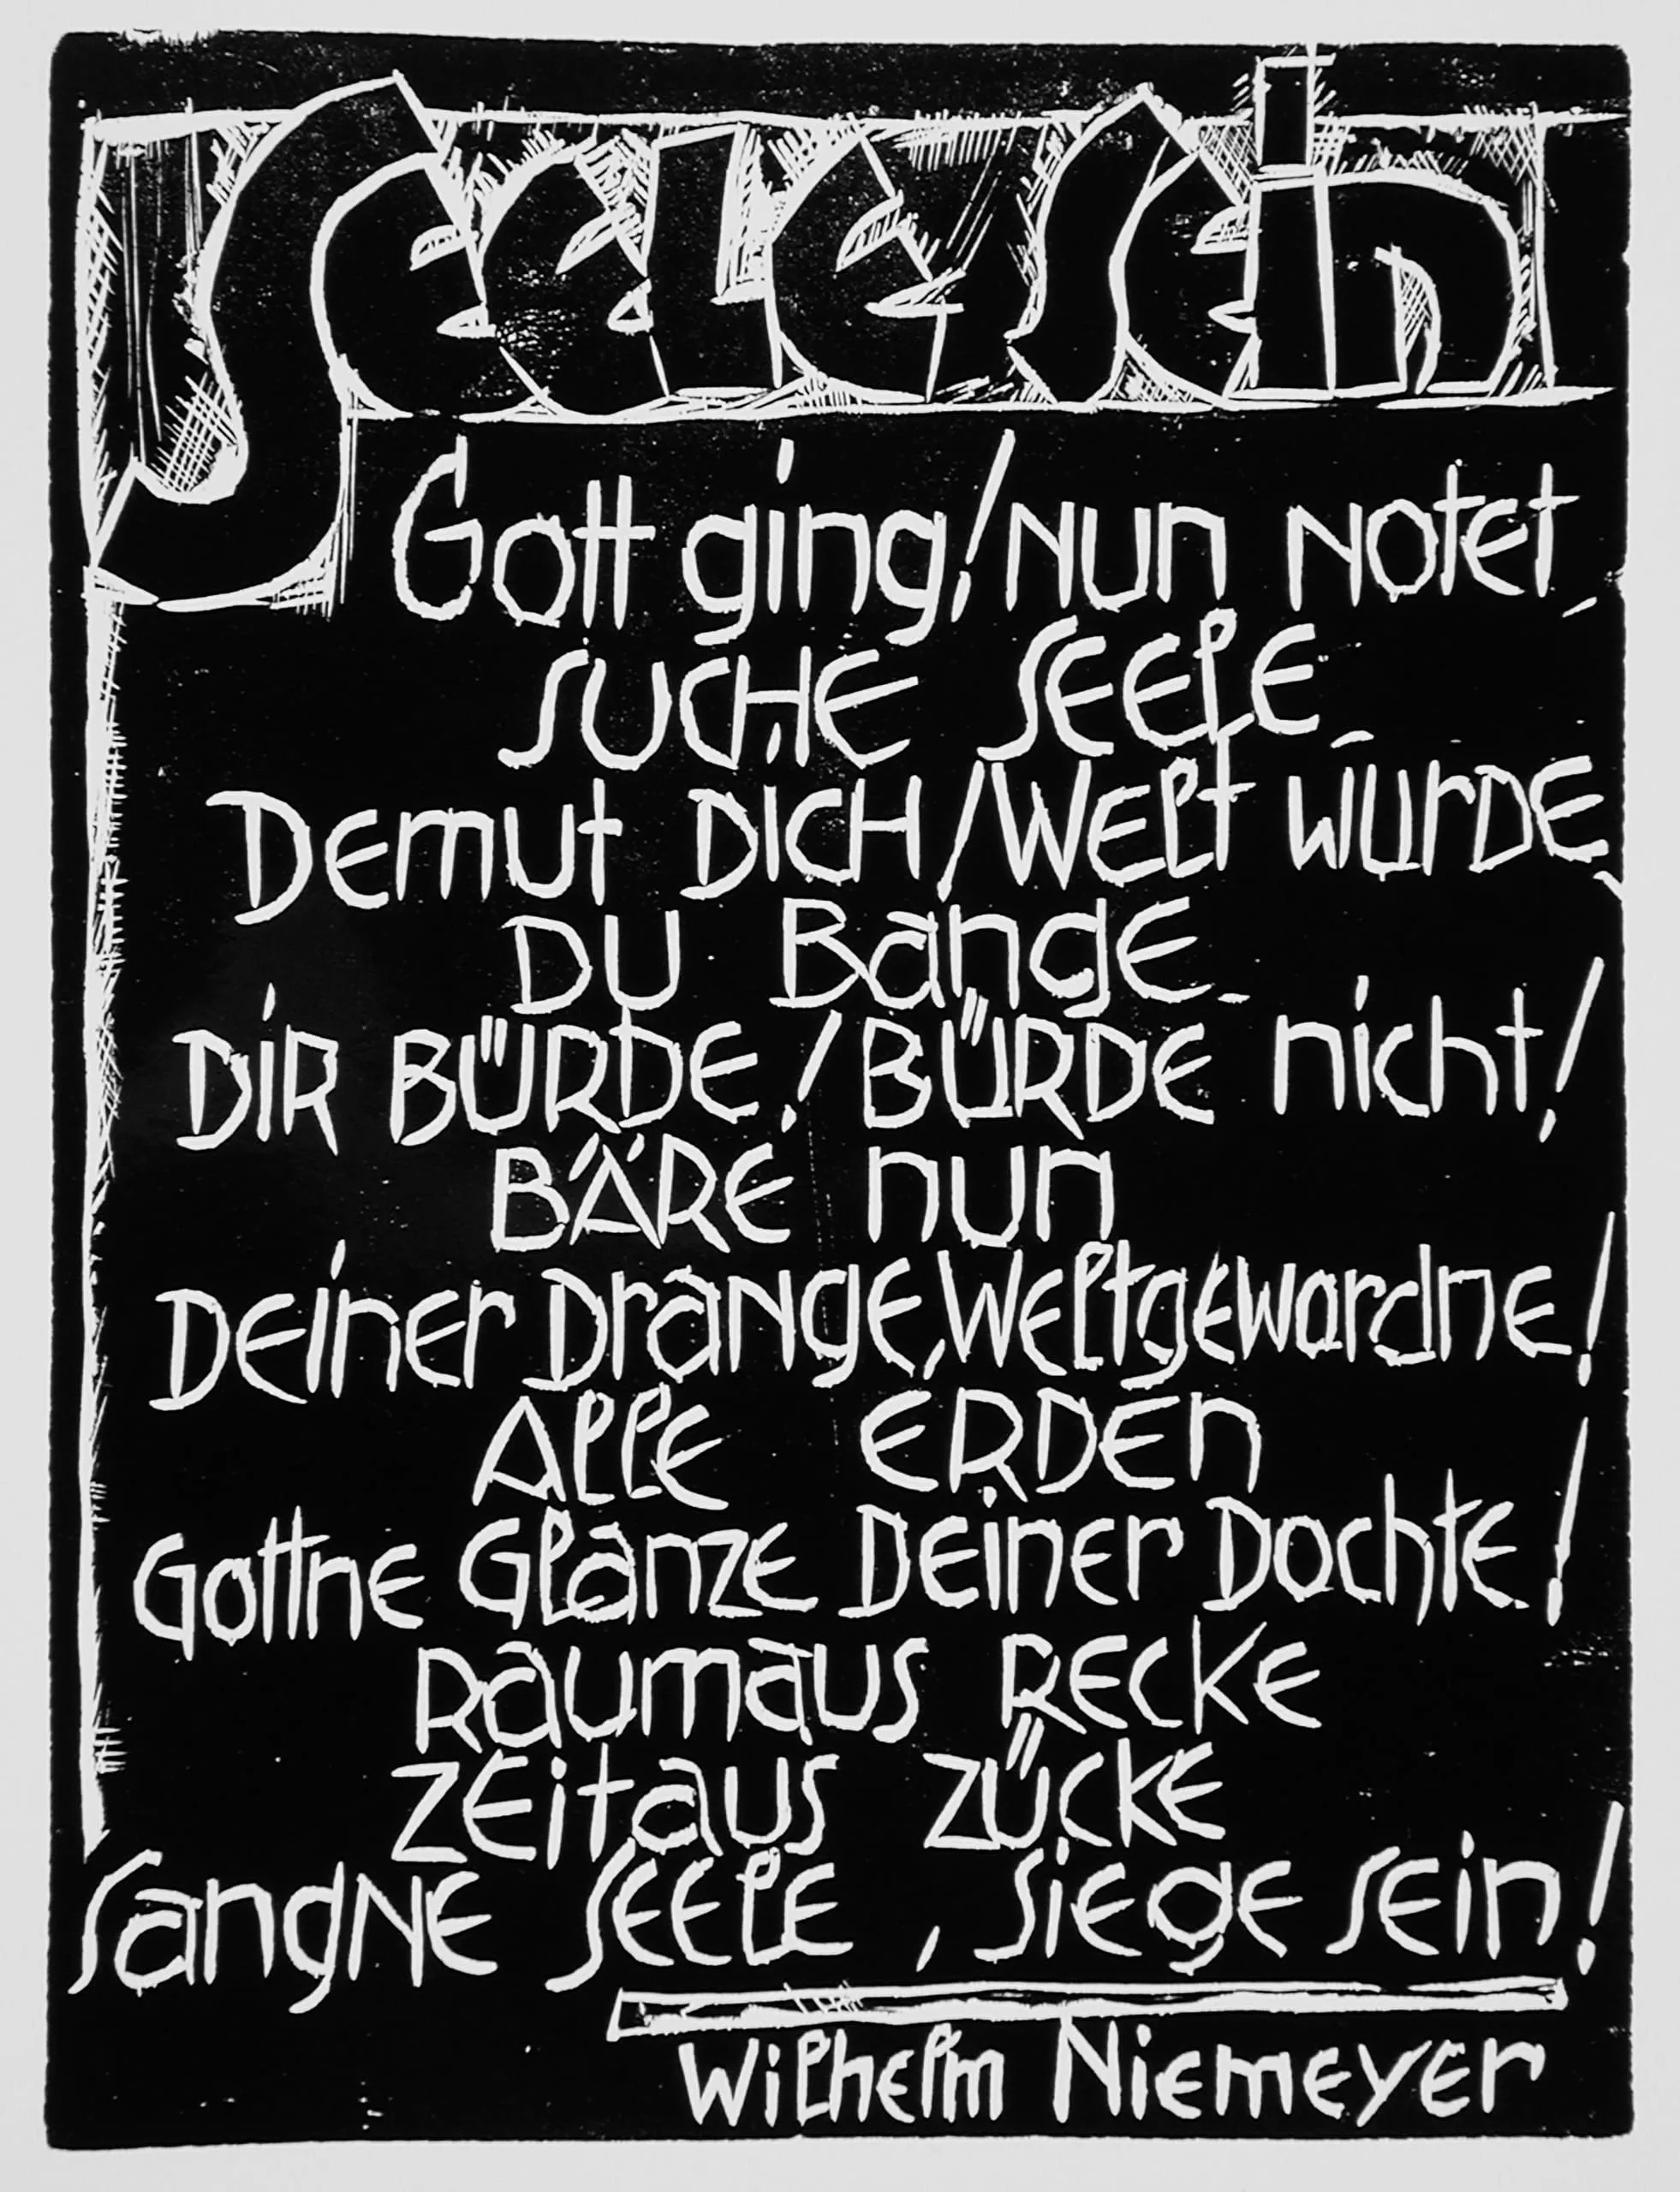 Gott ging! nun notet,
SUCHE SEELE
Demut DICH / Welt wurde,
DU Bange
DIR BÜRDE! BÜRDE nicht!
BÄRE nun
Deiner Drange, Weltgewordne!
ALLE ERDEN
Gottne Glanze Deiner Dochte!
Raumaus RECKE
ZEitaus ZÜCKE
SangNE SEELE, Siege sein!
Wilhelm Niemeyer